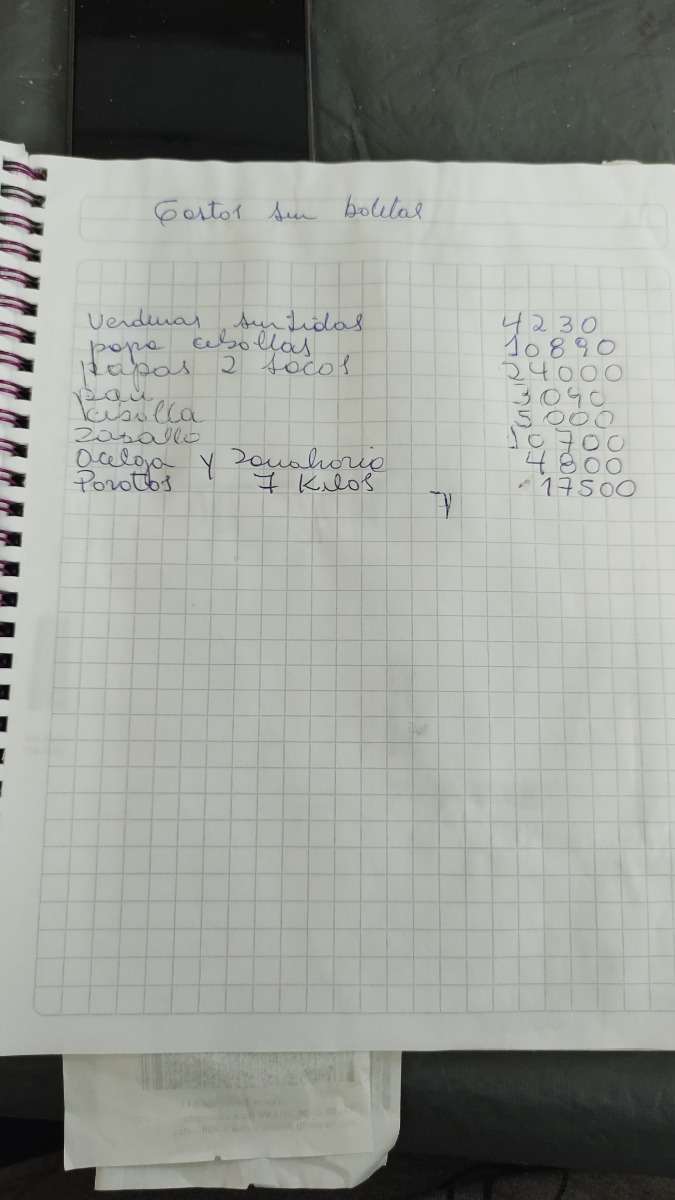 Gastos sin boletas
Verduras surtidas 4230
papa cebollas 10890
papas 2 sacos 24000
pan 3090
cebolla 5000
Zapallo 10700
Acelga y Zanahoria 4800
Porotos 7 Kilos 17500